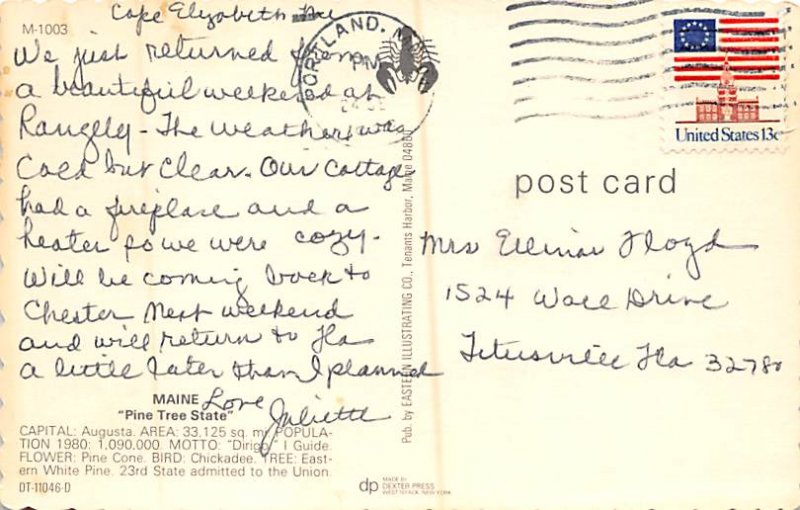 Cape Elizabeth Me
M-1003
We just returned from
a beautiful weekend at
Rangely - The weather was
Cold but clear. Our Cottage
had a fireplace and a
heater so we were cozy.
Will be coming back to
Chester next weekend
and will return to Fla
a little later than I planned
Love
Juliette
MAINE
"Pine Tree State"
CAPITAL: Augusta. AREA: 33,125 sq. mi. POPULA-
TION 1980: 1,090,000. MOTTO: "Dirigo," I Guide.
FLOWER: Pine Cone. BIRD: Chickadee. TREE: East-
ern White Pine. 23rd State admitted to the Union.
DT-11046-D
Pub. by EASTERN ILLUSTRATING CO., Tenants Harbor, Maine 04860
dp
MADE BY
DEXTER PRESS
WEST NYACK, NEW YORK
PORTLAND, ME
PM
United States 13c
post card
Mrs Ellinor Floyd
1524 Wall Drive
Titusville Fla 32780